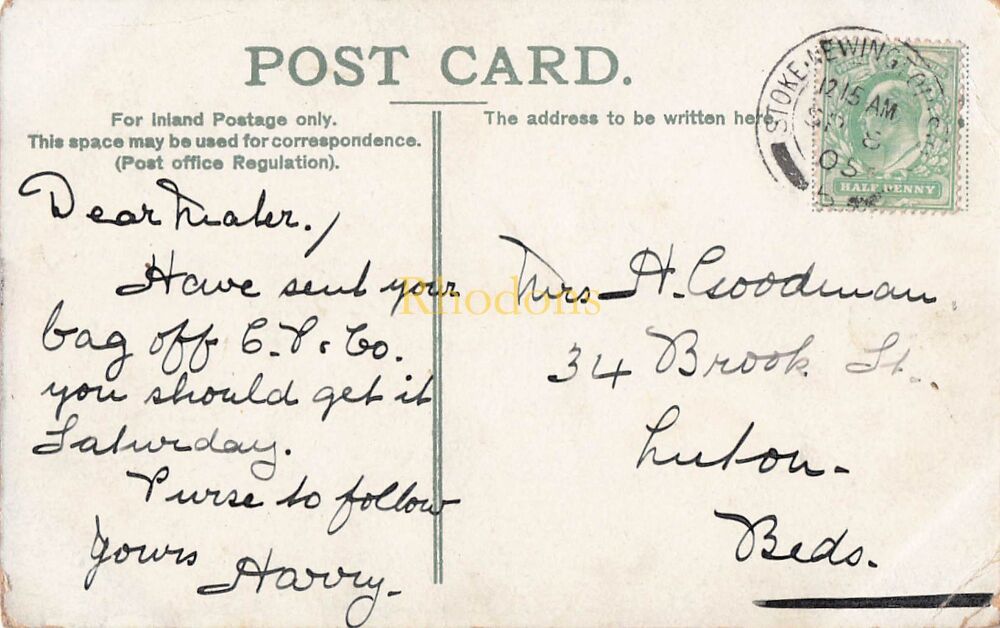 POST CARD.
For Inland Postage only.
This space may be used for correspondence.
(Post office Regulation).
The address to be written here.
STOKE-NEWINGTON
12 15 AM
05
HALF PENNY
Dear Mater,
Have sent your
bag off C.P. & Co.
you should get it
Saturday.
Purse to follow
Yours
Harry.
Mrs H. Goodman.
34 Brook St.
Luton-
Beds.
Rhodons